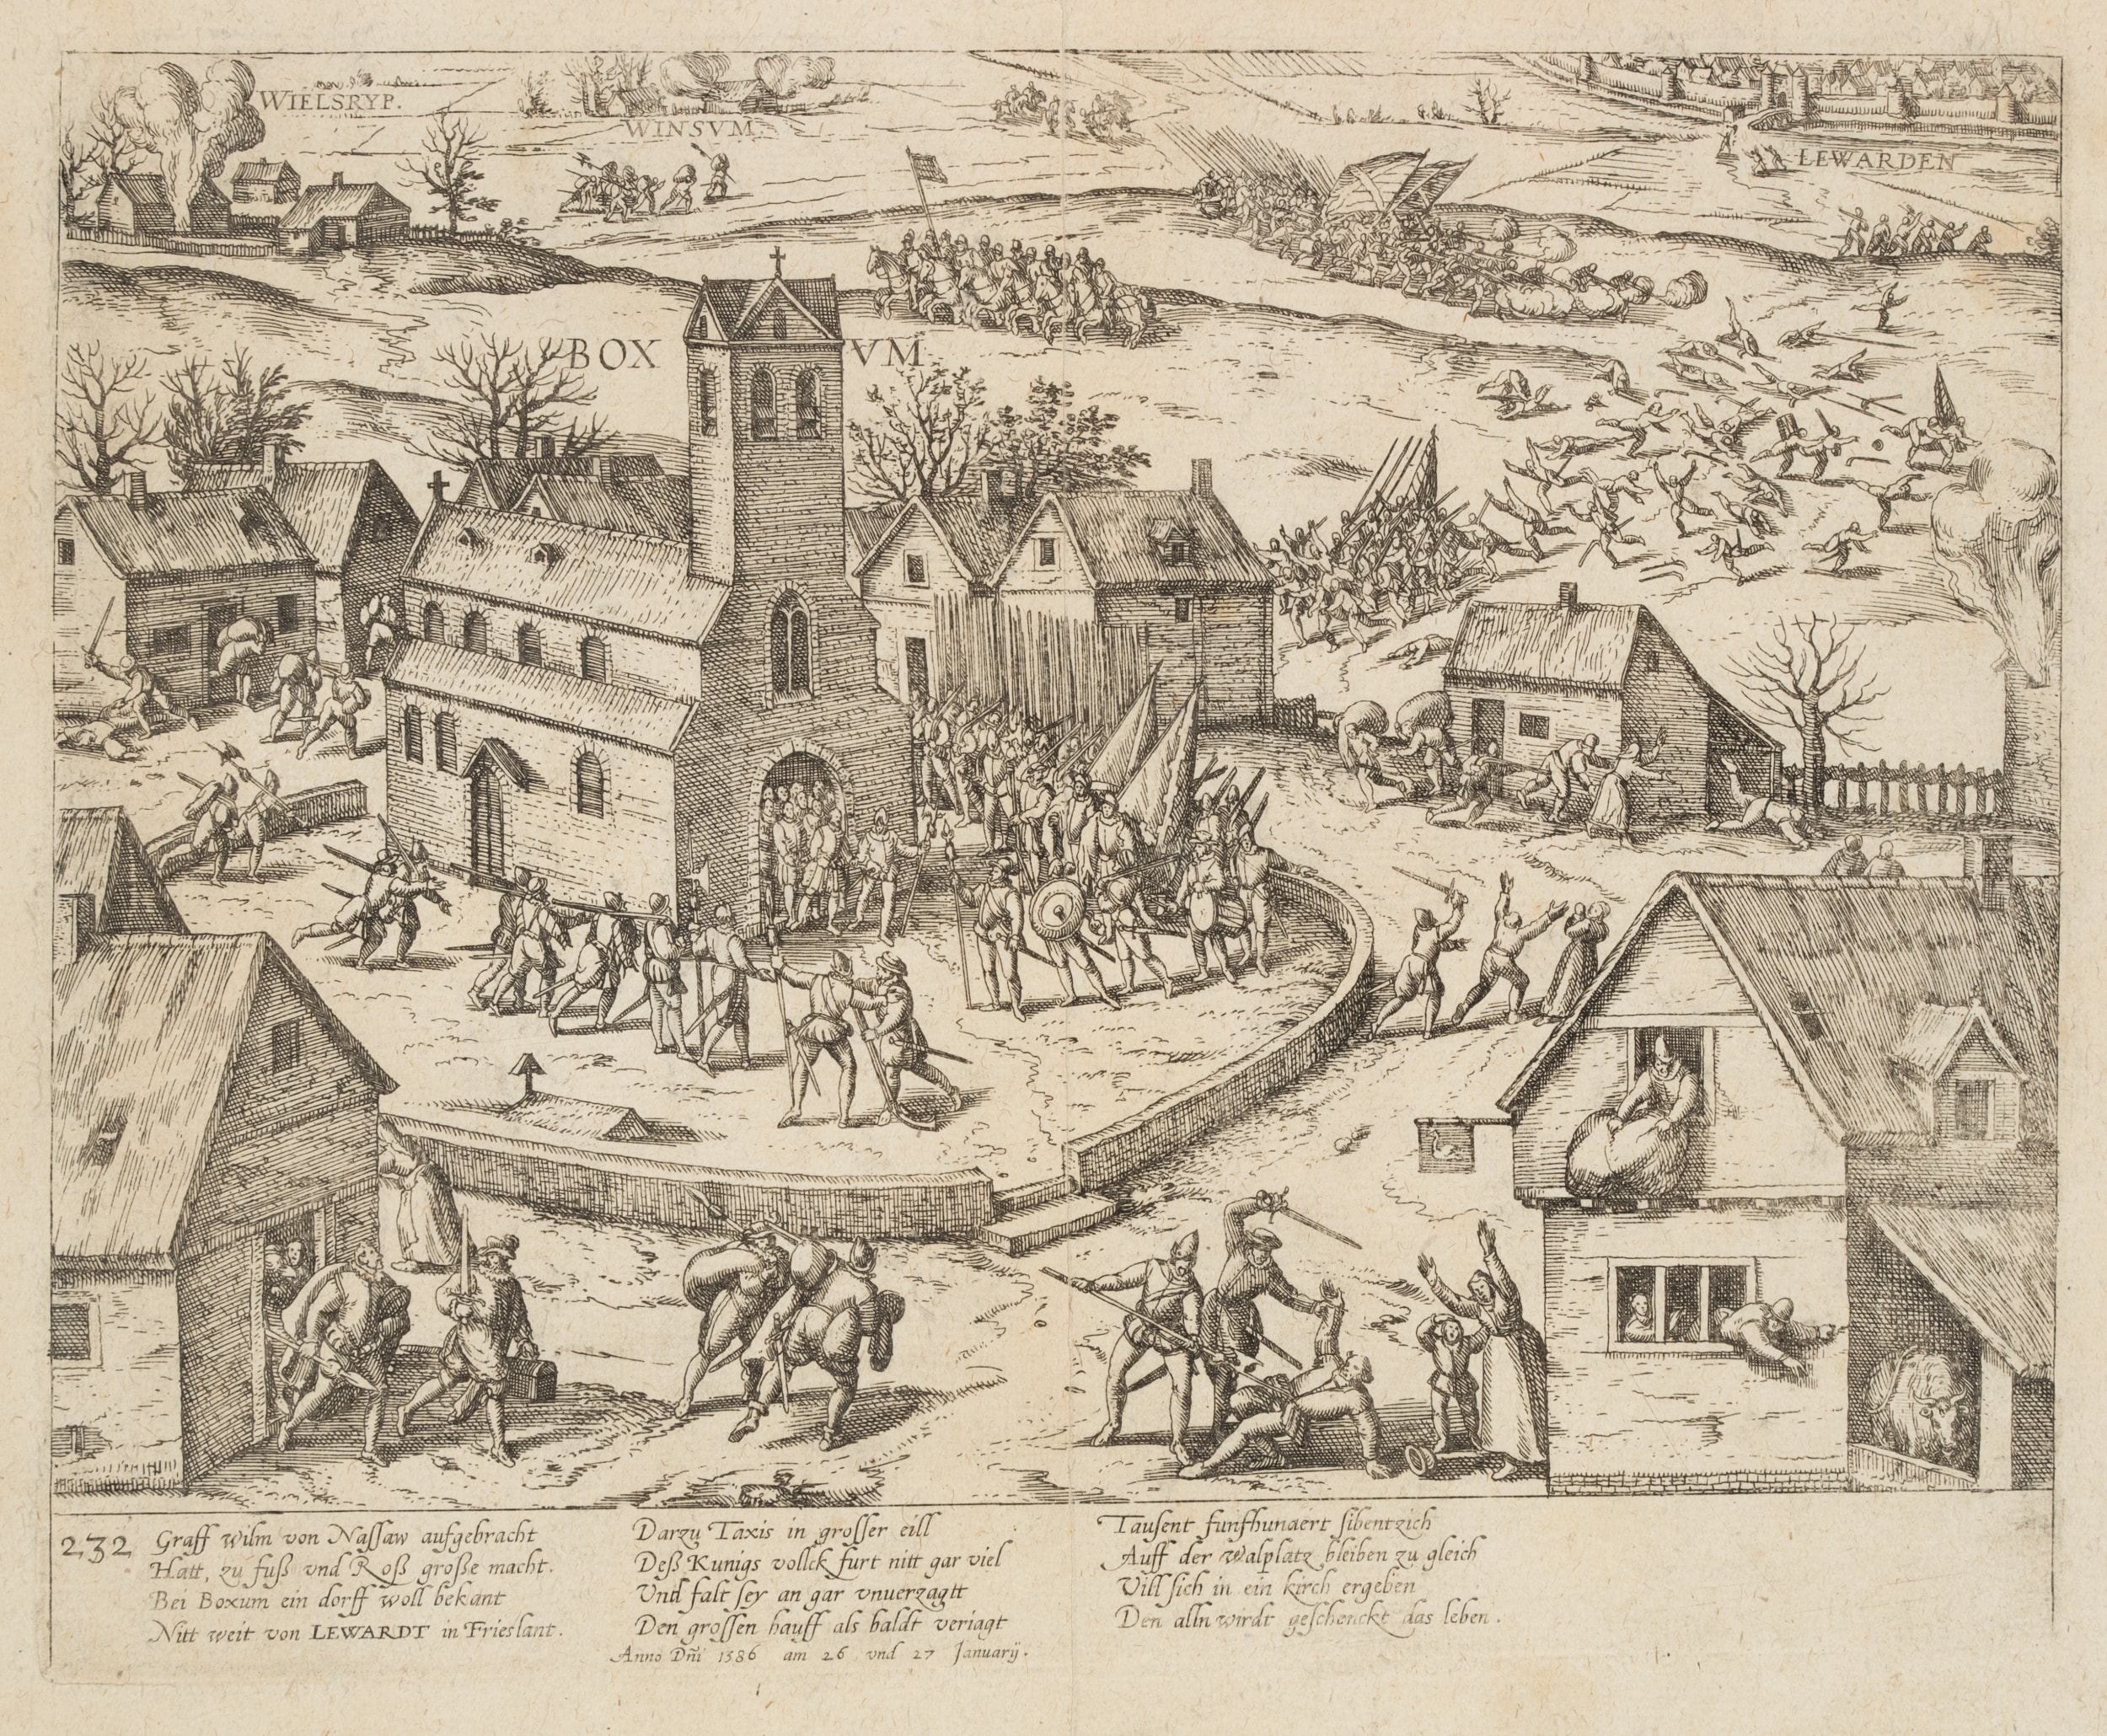 WIELSRYP.
WINSVM.
LEWARDEN
BOX VM.
232 Graff wilm von Naſſaw aufgebracht
Hatt, zu fuß vnd Roß große macht.
Bei Boxum ein dorff woll bekant
Nitt weit von LEWARDT in Frieslant.
Darzu Taxis in groſſer eill
Deß Kunigs vollck furt nitt gar viel
Und falt ſey an gar vnuerzagtt
Den groſſen hauff als baldt veriagt
Tauſent funfhundert ſibentzich
Auff der walplatz bleiben zu gleich
Vill ſich in ein kirch ergeben
Den alln wirdt geſchenckt das leben.
Anno Dñi 1586 am 26 vnd 27 Januarij.